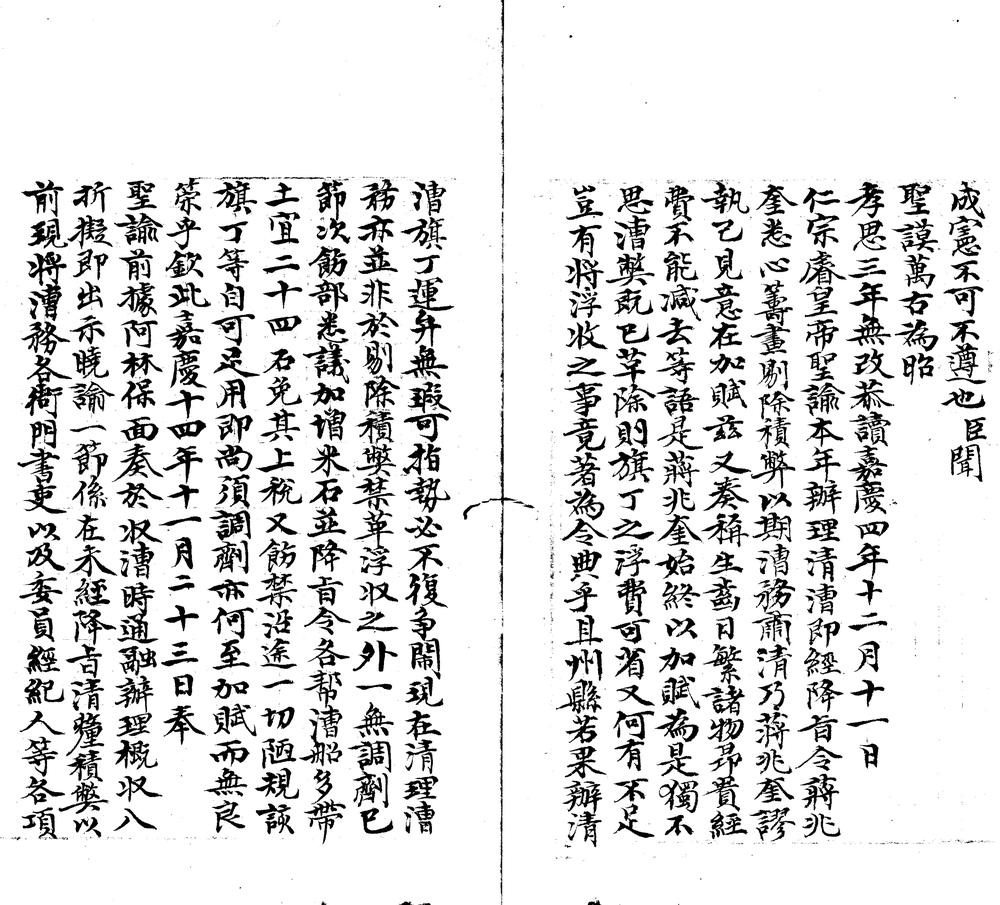 成憲不可不遵也臣聞
聖謨萬古為昭
孝思三年無改恭讀嘉慶四年十二月十一日
仁宗睿皇帝聖諭本年辦理清漕即經降旨令蔣兆
奎悉心籌畫剔除積弊以期漕務肅清乃蔣兆奎謬
執己見意在加賦茲又奏稱生齒日繁諸物昂貴經
費不能減去等語是蔣兆奎始終以加賦為是獨不
思漕獘既已革除則旗丁之浮費可省又何有不足
豈有將浮收之事竟著為令典乎且州縣若果辦清
漕旗丁運弁無瑕可指勢必不復争鬧現在清理漕
務亦並非於剔除積獘禁革浮収之外一無調劑已
節次飭部悉議加增米石並降旨令各幫漕船多帶
土宜二十四石免其上稅又飭禁沿途一切陋規該
旗丁等自可足用即尚須調劑亦何至加賦而無良
策乎欽此嘉慶十四年十一月二十三日奉
聖諭前據阿林保面奏於収漕時通融辦理概収八
折擬即出示曉諭一節係在未經降旨清釐積獘以
前現將漕務各衙門書吏以及委員經紀人等各項